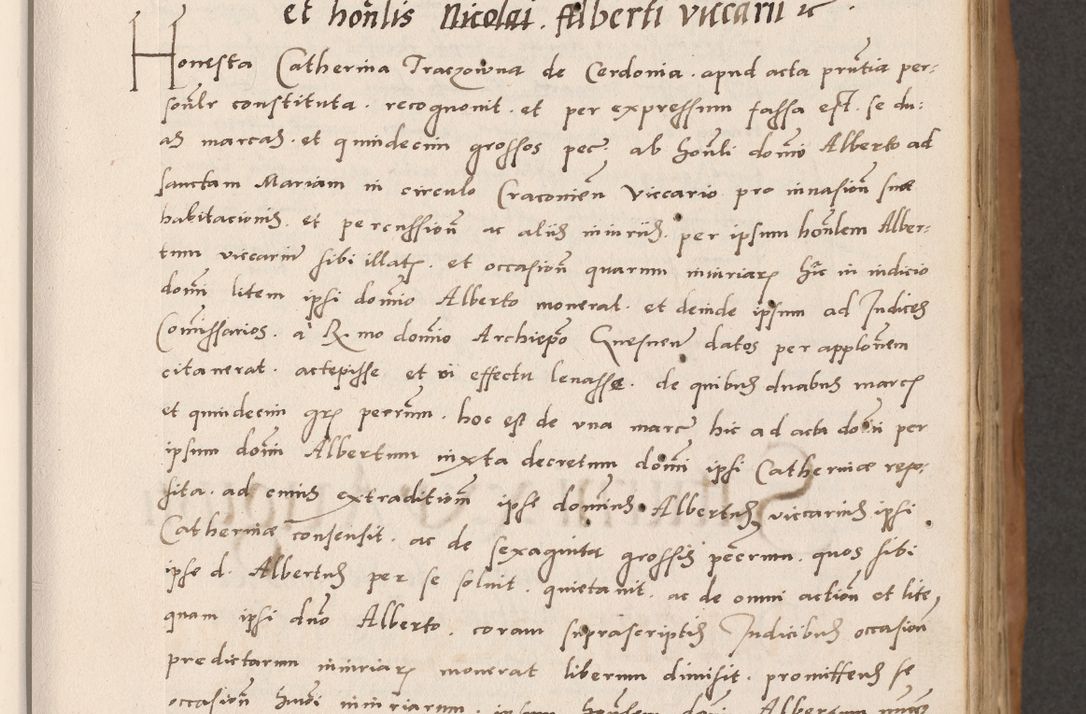 et hon̄lis Nicolai . Alberti viccarii ꝛc .
Honesta Catherina Traczowna de Cerdonia . apud acta prn̄tia per-
sonlr constituta . recognouit . et per expressum fassa est . se du-
as marcas . et quindecim grossos pec: ab hon̄li domino Alberto ad
sanctam Mariam in circulo Craconien̄ viccario pro inuasion̄ suæ
habitacionis . et percussion̄ ac aliis iniuriis . per ipsum hon̄lem Alber-
tum viccariū sibi illatꝝ . et occasion̄ quarum iniuriarꝝ hīc in iudicio
domi litem ipsi domīo Alberto mouerat . et deinde ipsum ad Iudices
Com̄issarios . à R. mo domīo Archiepō Gnesnen̄ datos per applonem
citauerat . accepisse et ei effectu leuasse . de quibus duabus marcꝭ
et quindecim grꝭ perrum . hoc est de vna marc hic ad acta domi per
ipsum domi Albertum iuxta decretum domi ipsi Catherinæ repo-
sita . ad cuius extraditiom̄ ipse dominus Albertus viccarius ipsi
Catherinæ consensit . ac de sexaginta grossis peccrum . quos sibi
ipse d. Albertus per se soluit . quietauit . ac de omni action̄ et lite,
quam ipsi dn̄o Alberto . coram suprascriptis Iudicibus occasion̄
predictarum iniuriarꝝ mouerat liberum dimisit . promittens se
occasion̄ huōi iniuriarum . ipsum hon̄lem Albertum